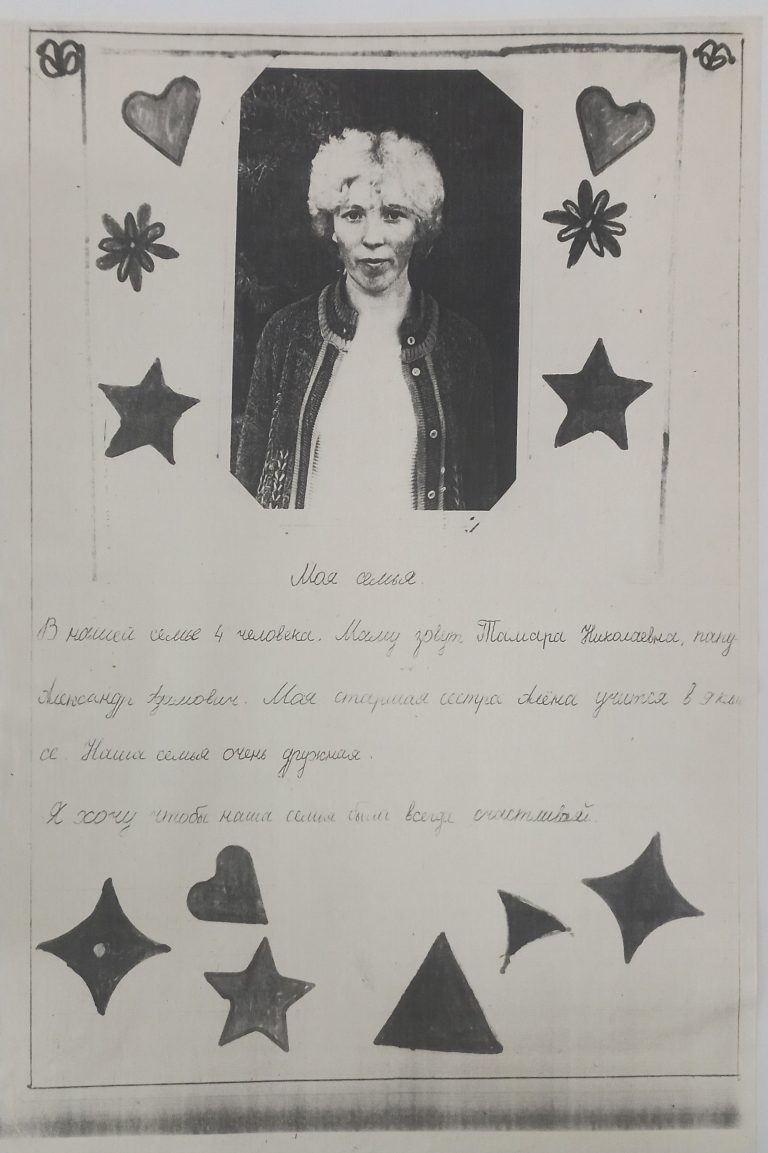 Моя семья.
В нашей семье 4 человека. Маму зовут Тамара Николаевна, папу
Александр Адамович. Моя старшая сестра Алёна учится в 9 клас
се. Наша семья очень дружная.
Я хочу чтобы наша семья была всегда счастливай.